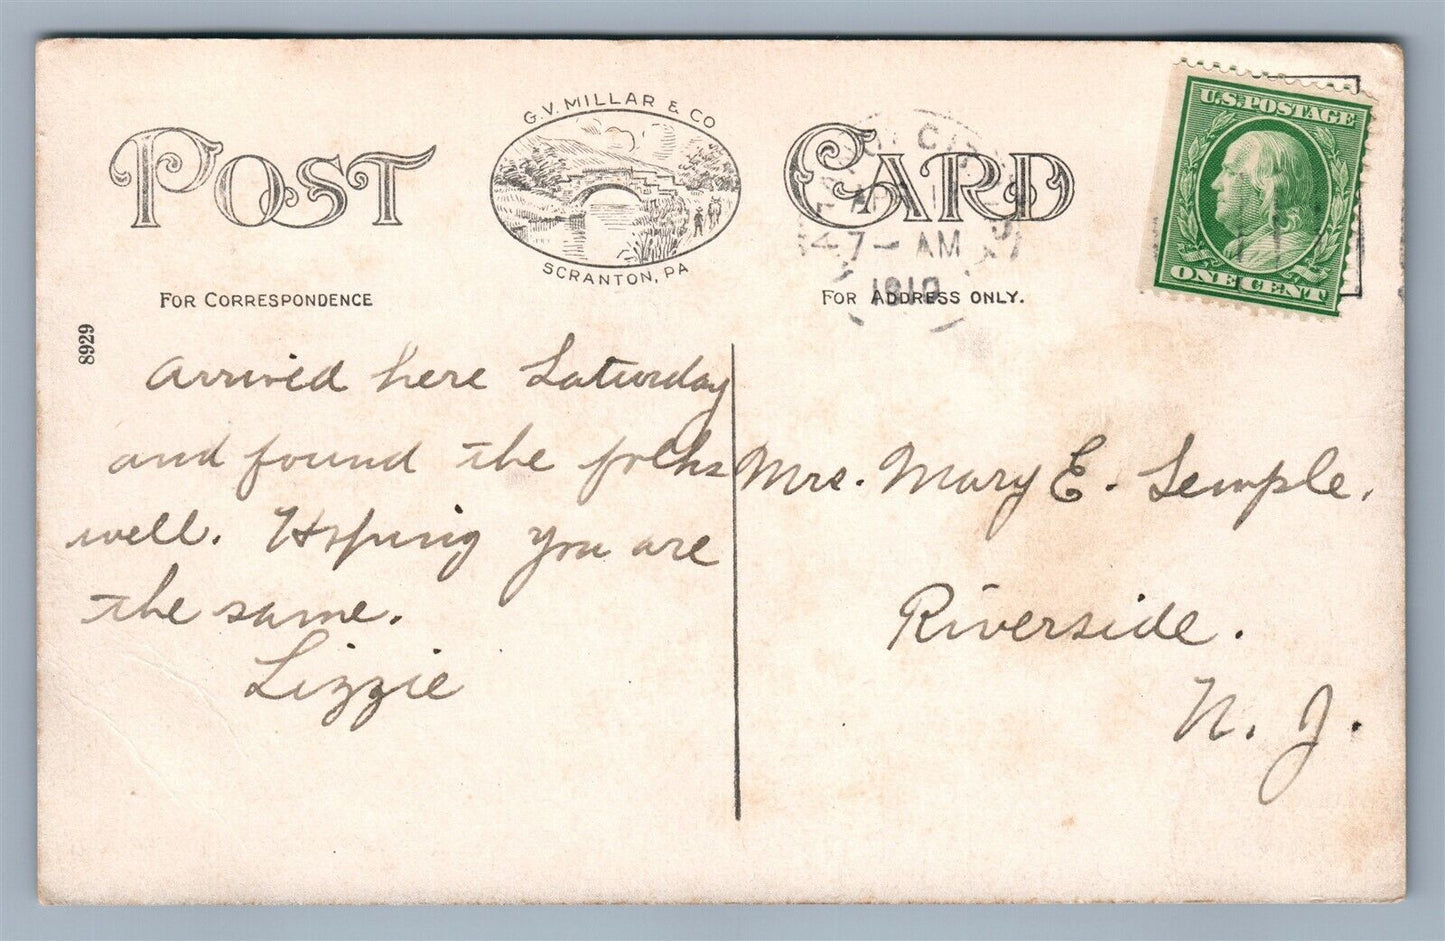 G.V. MILLAR & CO
SCRANTON, PA
POST CARD
U.S. POSTAGE
ONE CENT
APR 11
7- AM
1910
FOR CORRESPONDENCE
FOR ADDRESS ONLY.
8929
Arrived here Saturday
and found the folks
well. Hoping you are
the same.
Lizzie
Mrs. Mary E. Semple.
Riverside.
N. J.